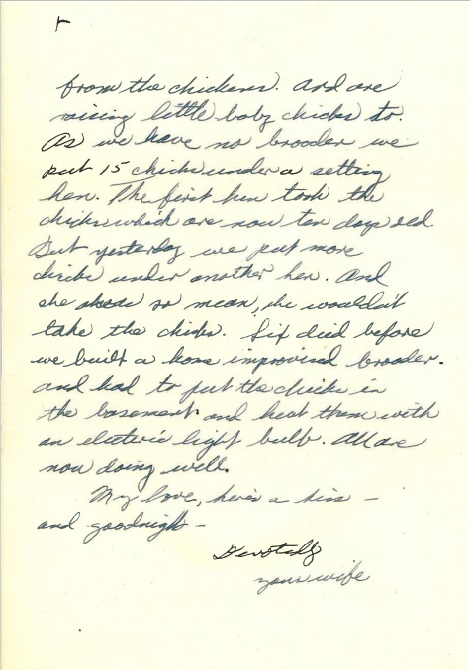 from the chickens. And are
raising little baby chicks to.
As we have no brooder we
put 15 chicks under a setting
hen. The first hen took the
chicks which are now ten days old
But yesterday we put more
chicks under another hen. And
she so mean, she wouldn't
take the chicks. Six died before
we built a home improvised brooder.
and had to put the chicks in
the basement and heat them with
an electric light bulb. All are
now doing well.
My love, here's a kiss –
and goodnight –
Devotedly
your wife